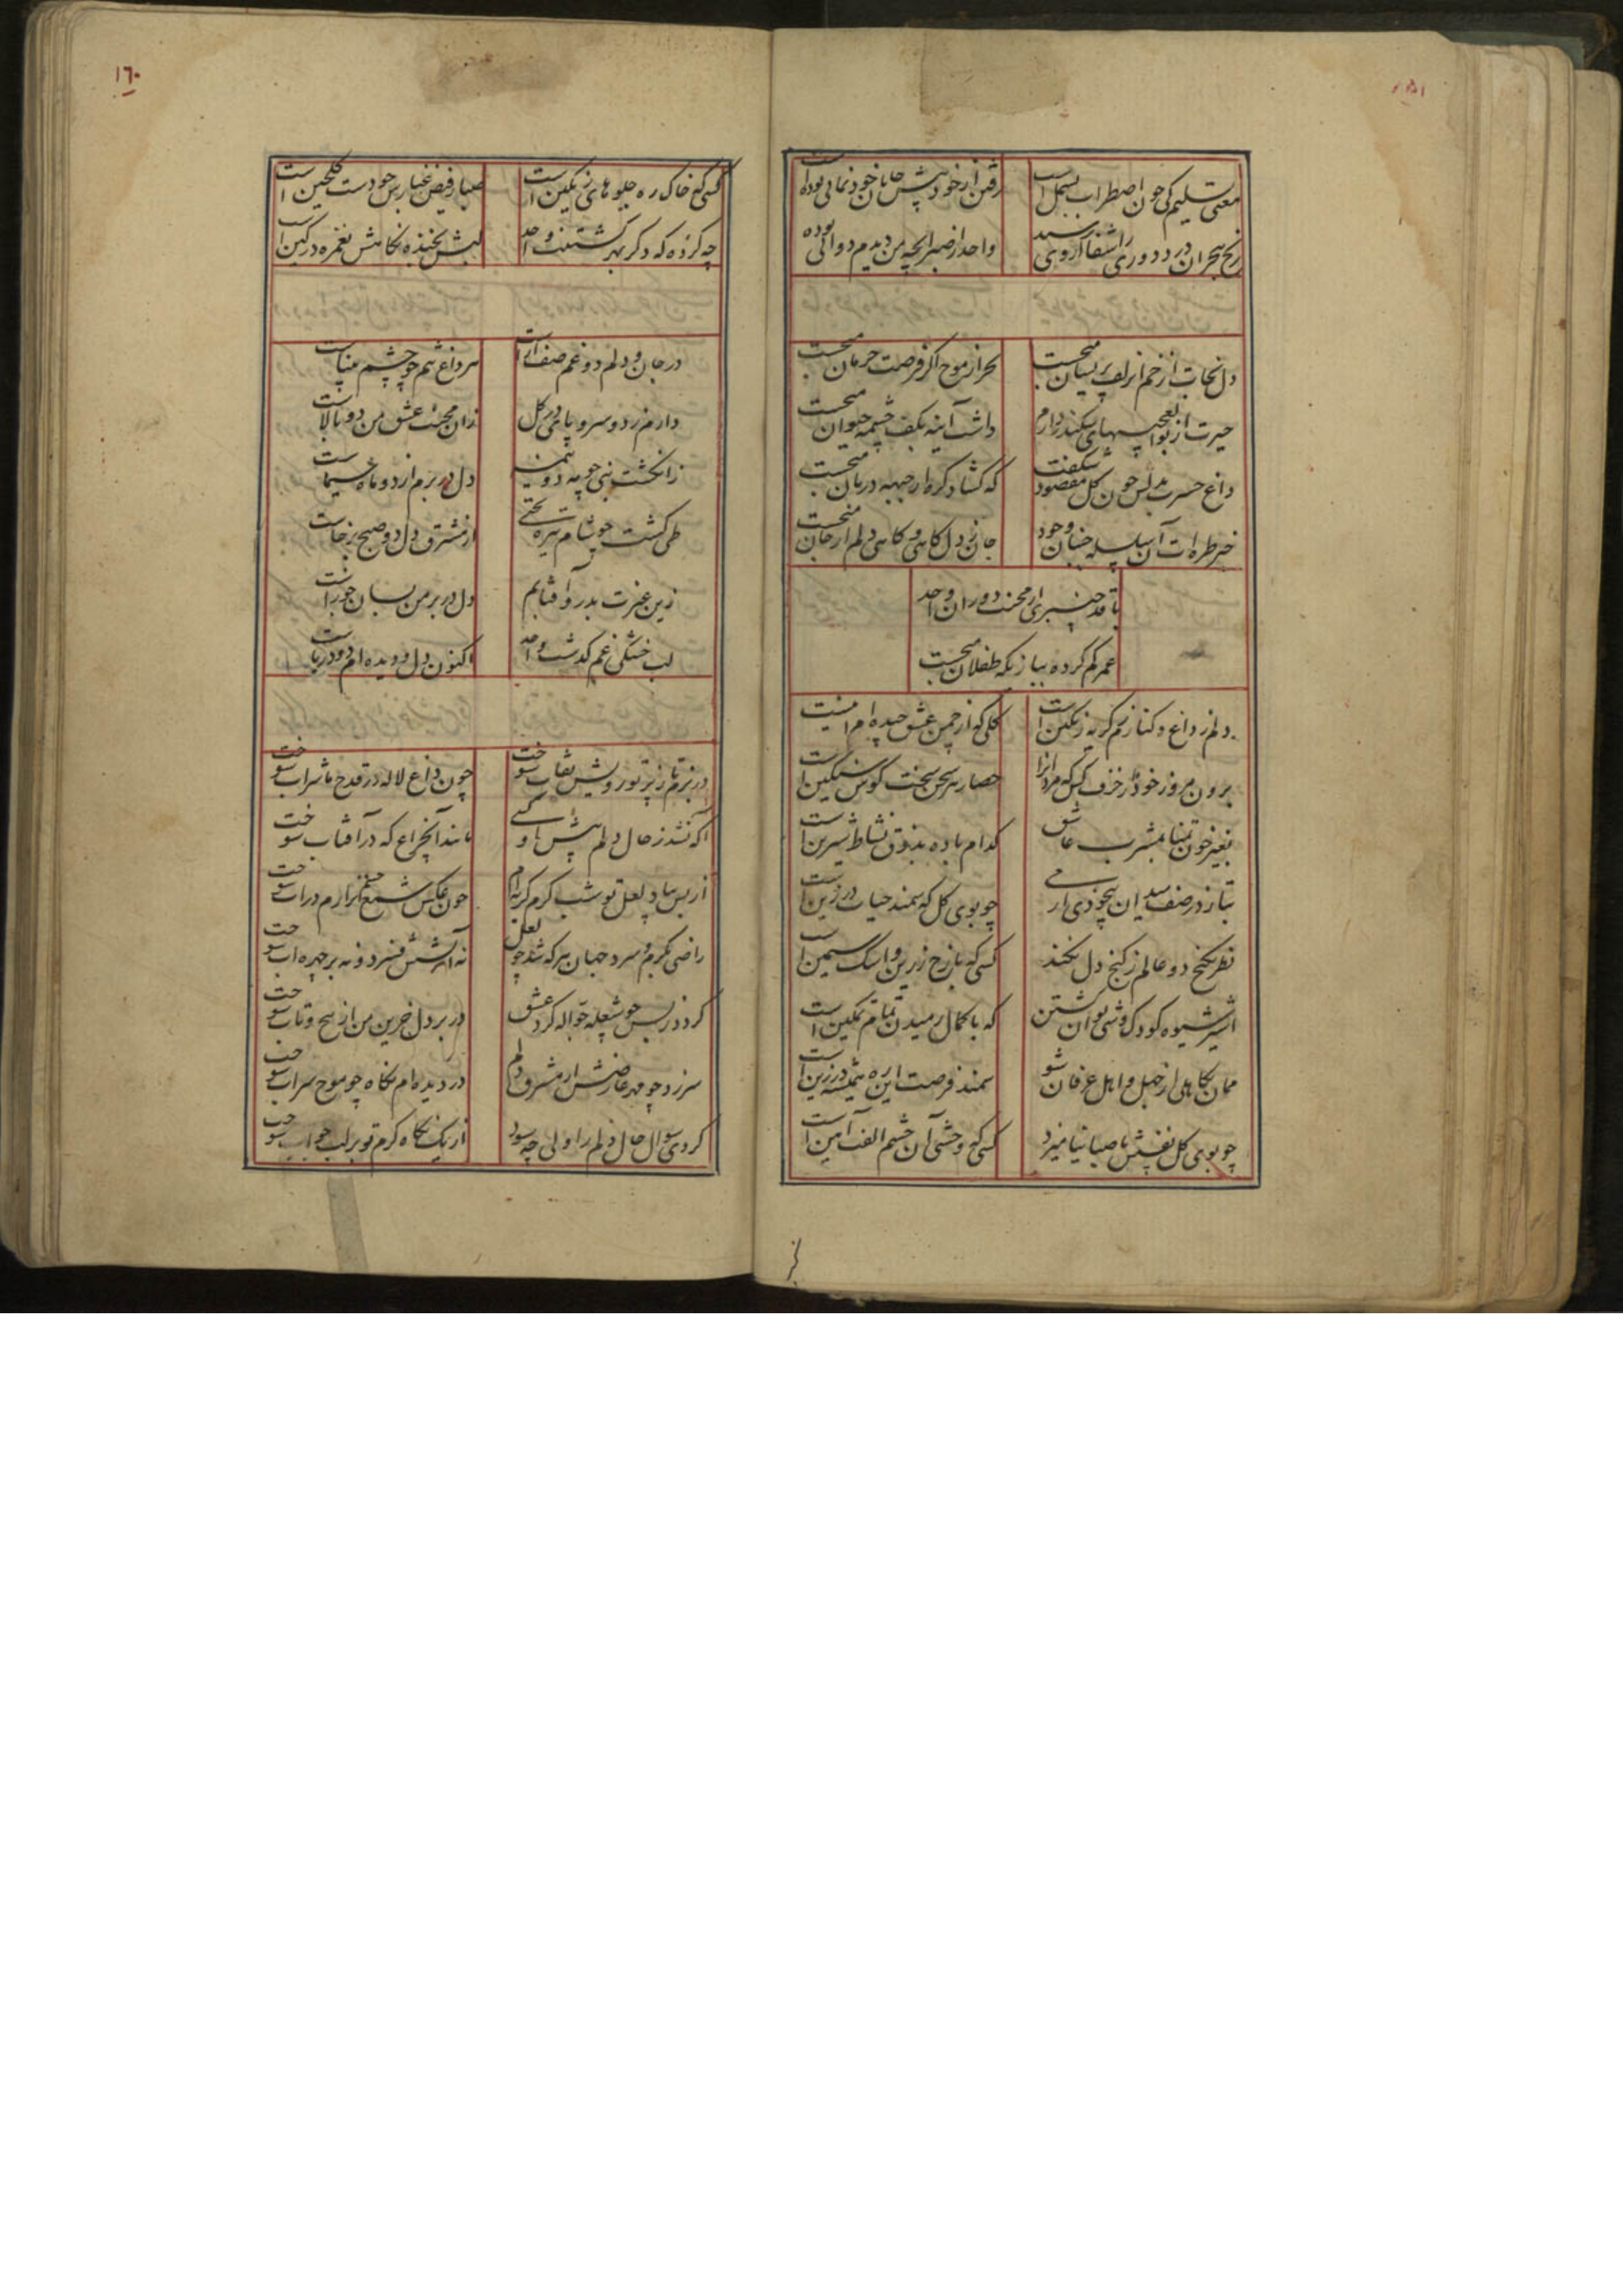 ۱۵۱
معنی تسلیم کی چون اضطراب بسمل است
رفتن از خود پیش جانان خودنمائی بوده است
رنج هجران درد دوری را شفا از وی رسید
واحد از صبر آنچه من دیدم دوائی بوده
دل نجات از خم زلف پریشان میجست
بحر از موج اگر فرصت جریان میجست
حیرت از بوالعجبیهای سکندر دارم
داشت آینه بکف چشمه حیوان میجست
داغ حسرت بدلش چون گل مقصود شکفت
که گشاد گره از جبهه دربان میجست
خبر طره ات آن سلسله جنبان وجود
جان ز دل گاهی و گاهی دلم از جان میجست
با قد چنبری از محنت دوران واحد
عمر گم کرده ببازیکه طفلان میجست
دلم ز داغ و کنارم ز گریه رنگین است
گلی که از چمن عشق چیده ام اینست
برون مرو ز خود در خزف کس که مردانرا
حصار سخت سنگین است
بغیر خون تمنا بمشرب عاشق
کدام باده بذوق نشاط شیرین است
بتاز در صف میدان بیخودی باری
چو بوی گل که سمند حیات در زین است
نظر بگنج دو عالم ز کنج دل نکند
کسی که با رخ زرین و اشک سیمین است
اسیر شیوه کودک وشی توان گشتن
که با کمال رمیدن تمام تمکین است
ممان بکاهلی از جهل و اهل عرفان شو
سمند فرصت این ره همیشه در زین است
چو بوی گل نفسش با صبا نیامیزد
کسی که وحشی آن چشم الفت آمین است
۱۶۰
کسی که خاک ره جلوهای رنگین است
صبا ز فیض غبارش چو دست گلچین است
چه کرده که دگر بهر کشتنت واحد
لبش بخنده نگاهش بغمزه در کین است
در جان و دلم دو غم صف آراست
سر داغ بهم چو چشم میناست
دارم ز دو سرو پای در گل
زان محنت عشق من دو بالاست
ز انگشت نمی چو به دو نیمند
دل در برم از دو ماه سیماست
طی گشت چو شام تیره بختی
از مشرق دل دو صبح برخاست
زین عزت بدر و آفتابم
دل در بر من بسان جوزاست
لب خشکی غم گذشت واحد
اکنون دل و دیده ام دو دریاست
در بزم ما ز پرتو رویش نقاب سوخت
چون داغ لاله در قدح ما شراب سوخت
آگه نشد ز حال دلم پیش او کسی
مانند آن چراغ که در آفتاب سوخت
از بس بیاد لعل تو شب گرم گریه ام
چون عکس شمع در آب سوخت
راضی بگرم و سرد جهان هر که شد چو لعل
نه آتشش فسرد و نه بر چهره آب سوخت
گردد ز بس چو شعله جواله گرد عشق
در بر دل حزین من از پیچ و تاب سوخت
سر زد چو مهر عارضش از مشرق دلم
در دیده ام نگاه چو موج سراب سوخت
کردی سوال حال دلم را ولی چه سود
از یک نگاه گرم تو بر لب جواب سوخت